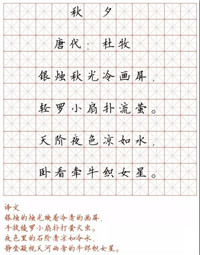 秋夕
唐代:杜牧
银烛秋光冷画屏,
轻罗小扇扑流萤。
天阶夜色凉如水,
卧看牵牛织女星。
译文
银烛的烛光映着冷清的画屏,
手执绫罗小扇扑打萤火虫。
夜色里的石阶清凉如冷水,
静坐凝视天河两旁的牛郎织女星。